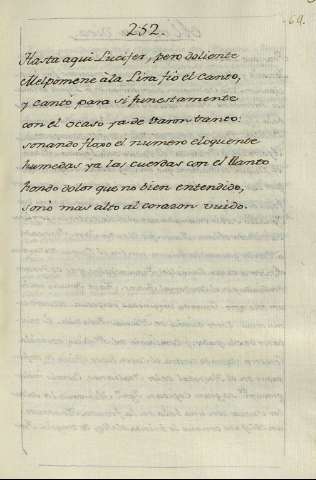 252.
64.
Hasta aqui Lucifer, pero doliente
Melpomene à la Lira fió el Canto,
y cantò para si funestamente
con el ocaso ya de tanto:
sonando floxo el numero eloquente
humedas ya las cuerdas con el llanto
hondo dolor que no bien entendido,
sonò mas alto al corazon unido.